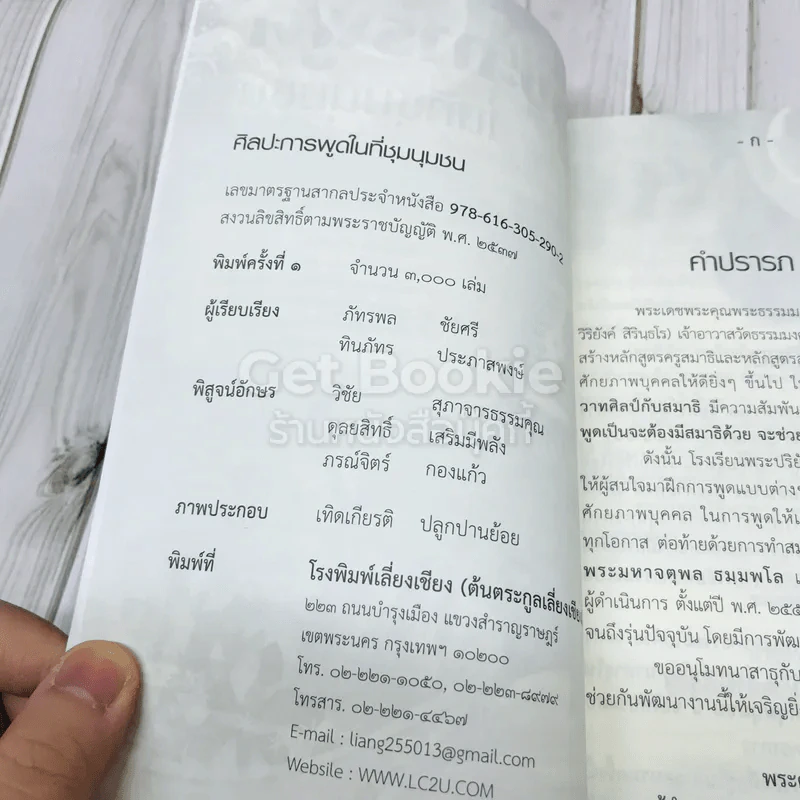 ศิลปะการพูดในที่ชุมนุมชน
เลขมาตรฐานสากลประจำหนังสือ 978-616-305-290-2
สงวนลิขสิทธิ์ตามพระราชบัญญัติ พ.ศ. ๒๕๓๗
พิมพ์ครั้งที่ ๑ จำนวน ๓,๐๐๐ เล่ม
ผู้เรียบเรียง ภัทรพล ชัยศรี
ทินภัทร ประภาสพงษ์
พิสูจน์อักษร วิชัย สุภาจารธรรมคุณ
ดุลยสิทธิ์ เสริมมีพลัง
ภรณ์จิตร์ กองแก้ว
ภาพประกอบ เทิดเกียรติ ปลูกปานย้อย
พิมพ์ที่ โรงพิมพ์เลี่ยงเชียง (ต้นตระกูลเลี่ยงเชีย
๒๒๓ ถนนบำรุงเมือง แขวงสำราญราษฎร์
เขตพระนคร กรุงเทพฯ ๑๐๒๐๐
โทร. ๐๒-๒๒๑-๑๐๕๐, ๐๒-๒๒๓-๘๙๗๙
โทรสาร. ๐๒-๒๒๑-๔๔๖๗
E-mail : liang255013@gmail.com
Website : WWW.LC2U.COM
Get Bookie
ร้านหนังสือบุ๊คกี้
- ก -
คำปรารภ
พระเดชพระคุณพระธรรมม
วิริยังค์ สิรินฺธโร) เจ้าอาวาสวัดธรรมมง
สร้างหลักสูตรครูสมาธิและหลักสูตร
ศักยภาพบุคคลให้ดียิ่งๆ ขึ้นไป
วาทศิลป์กับสมาธิ มีความสัมพัน
พูดเป็นจะต้องมีสมาธิด้วย จะช่วย
ดังนั้น โรงเรียนพระปริยั
ให้ผู้สนใจมาฝึกการพูดแบบต่างๆ
ศักยภาพบุคคล ในการพูดให้เ
ทุกโอกาส ต่อท้ายด้วยการทำสม
พระมหาจตุพล ธมฺมพโล
ผู้ดำเนินการ ตั้งแต่ปี พ.ศ. ๒๕๕
จนถึงรุ่นปัจจุบัน โดยมีการพัฒ
ขออนุโมทนาสาธุกับ
ช่วยกันพัฒนางานนี้ให้เจริญยิ่